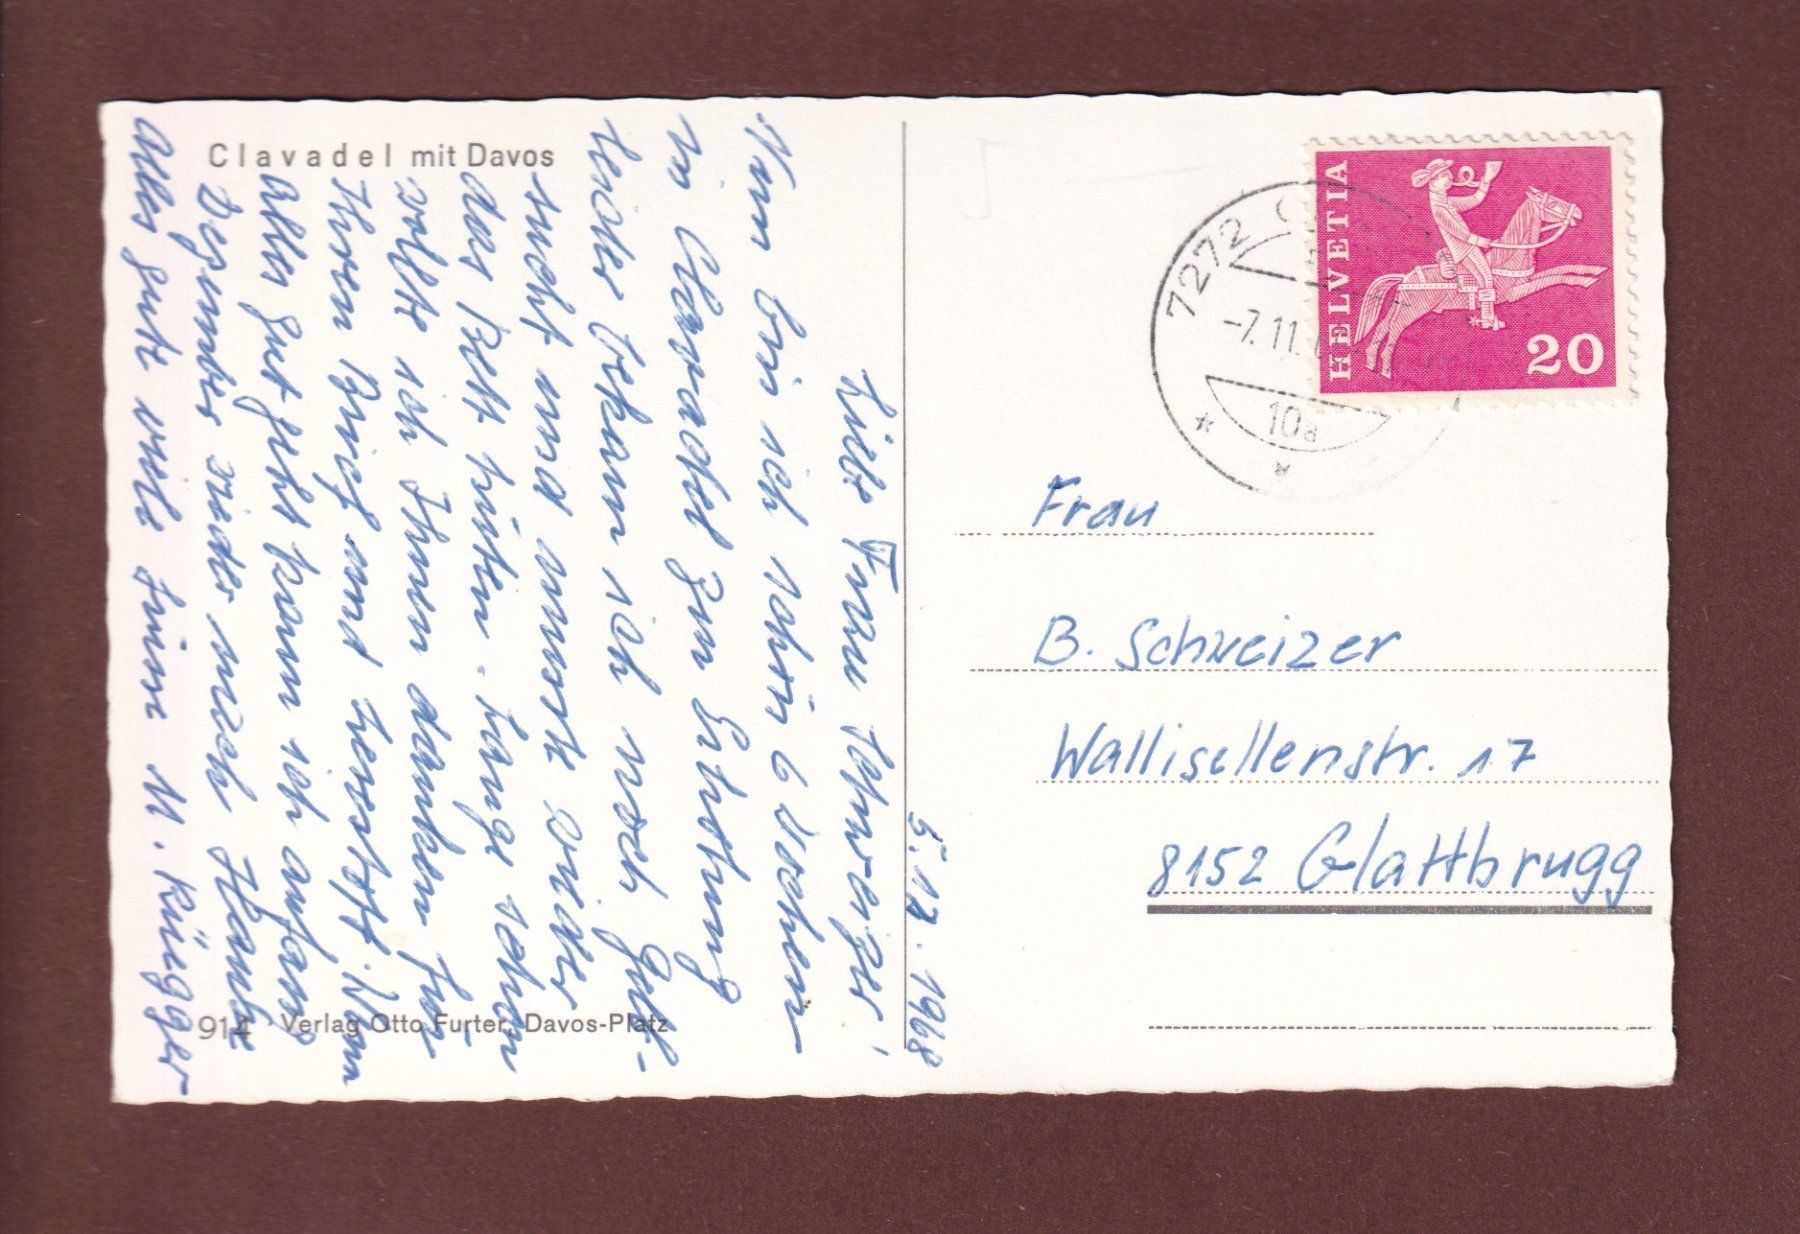 Clavadel mit Davos
5. 12. 1968
Liebe Frau Schweizer!
Nun bin ich schon 6 Wochen
in Clavadel zur Erholung
leider bekam ich noch Gelb-
sucht und musste wieder
das Bett hüten. Lange schon
wollte ich Ihnen danken für
Ihren Brief und Lesestoff. Wenn
alles gut geht kann ich anfang
Dezember wieder nach Hause
alles gute viele Grüsse M. Rüegger
914 Verlag Otto Furter, Davos-Platz
HELVETIA
20
7272
-7.11.
10a
Frau
B. Schweizer
Wallisellenstr. 17
8152 Glattbrugg